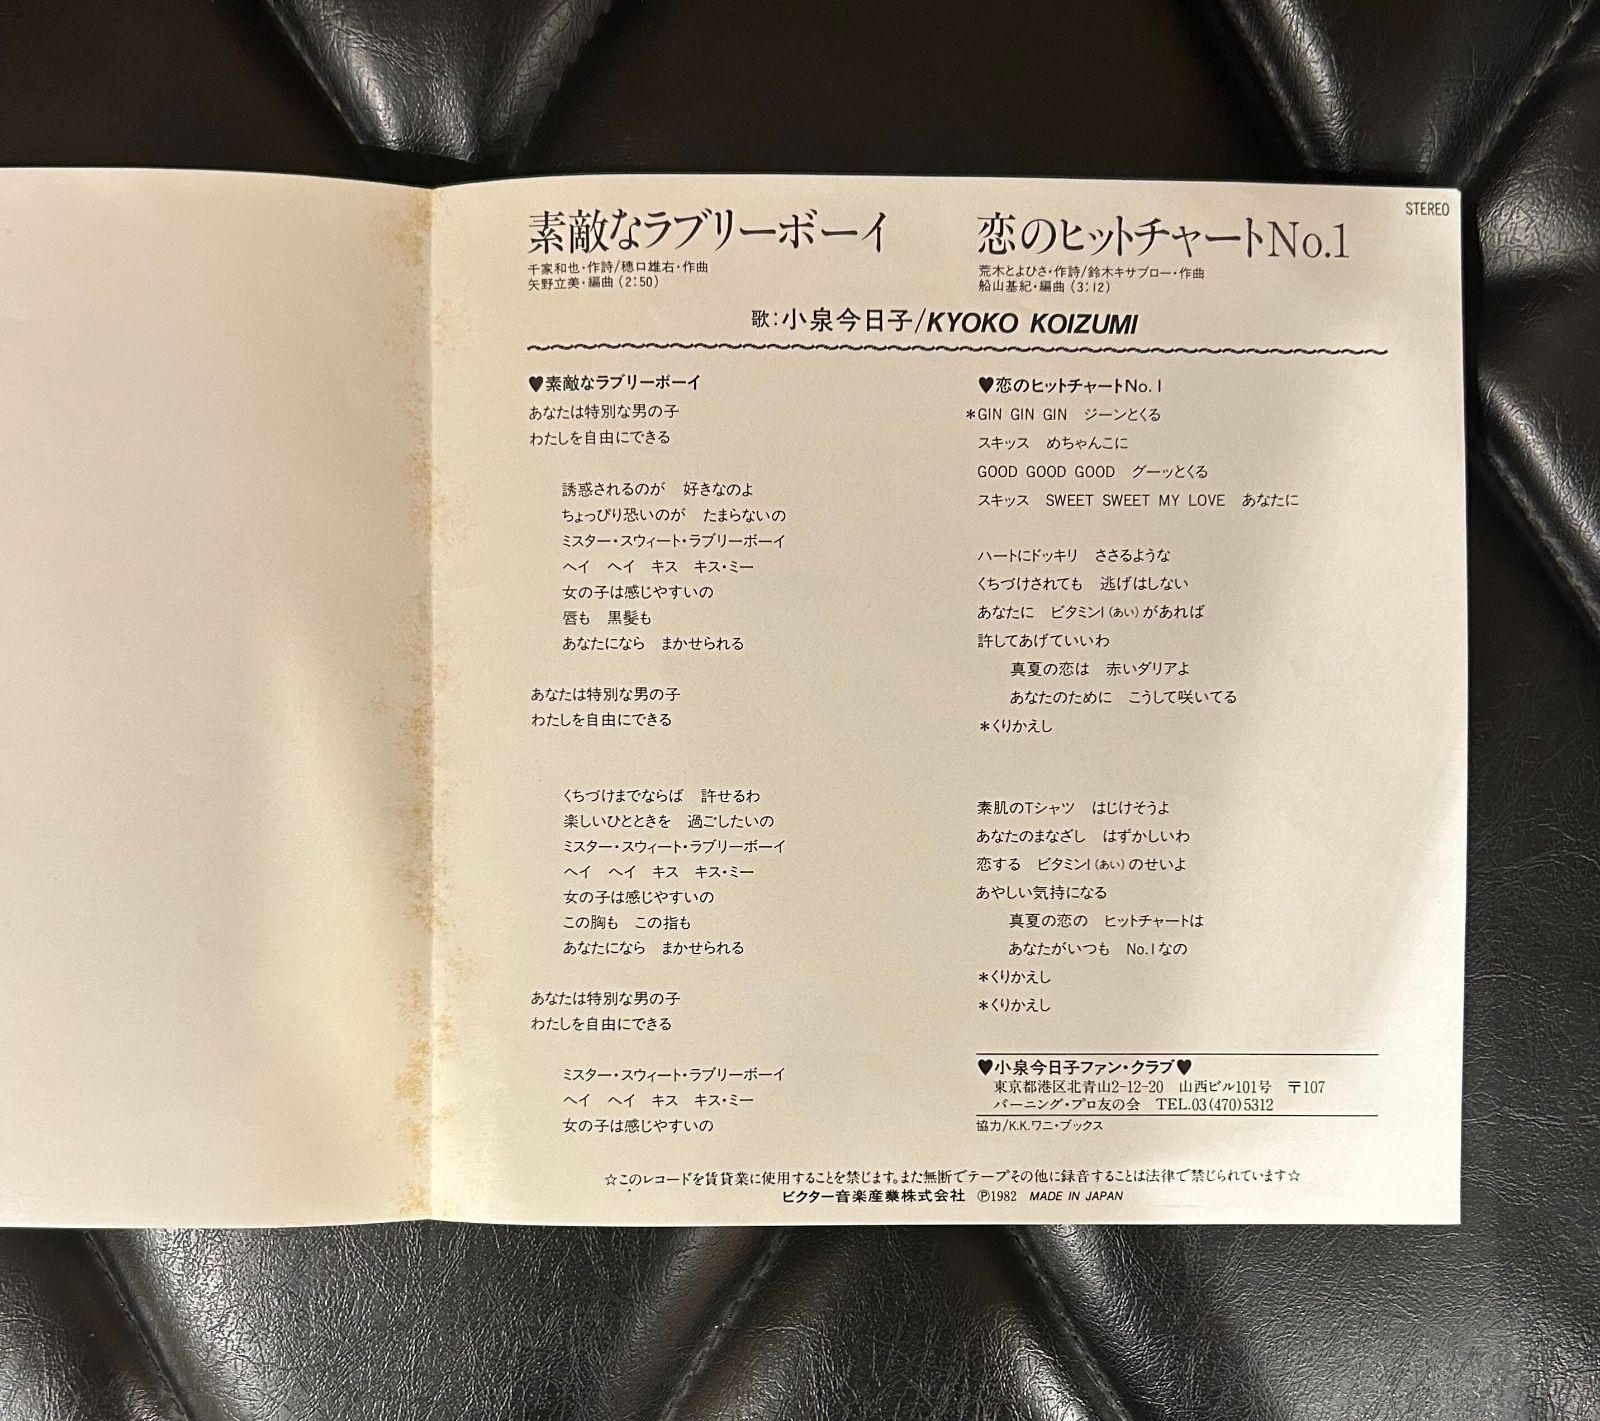 STEREO
素敵なラブリーボーイ
千家和也・作詩/穂口雄右・作曲
矢野立美・編曲 (2:50)
恋のヒットチャートNo.1
荒木とよひさ・作詩/鈴木キサブロー・作曲
船山基紀・編曲 (3:12)
歌:小泉今日子/KYOKO KOIZUMI
♥素敵なラブリーボーイ
あなたは特別な男の子
わたしを自由にできる
誘惑されるのが 好きなのよ
ちょっぴり恐いのが たまらないの
ミスター・スウィート・ラブリーボーイ
ヘイ ヘイ キス キス・ミー
女の子は感じやすいの
唇も 黒髪も
あなたになら まかせられる
あなたは特別な男の子
わたしを自由にできる
くちづけまでならば 許せるわ
楽しいひとときを 過ごしたいの
ミスター・スウィート・ラブリーボーイ
ヘイ ヘイ キス キス・ミー
女の子は感じやすいの
この胸も この指も
あなたになら まかせられる
あなたは特別な男の子
わたしを自由にできる
ミスター・スウィート・ラブリーボーイ
ヘイ ヘイ キス キス・ミー
女の子は感じやすいの
♥恋のヒットチャートNo.1
*GIN GIN GIN ジーンとくる
スキッス めちゃんこに
GOOD GOOD GOOD グーッとくる
スキッス SWEET SWEET MY LOVE あなたに
ハートにドッキリ ささるような
くちづけされても 逃げはしない
あなたに ビタミンI(あい)があれば
許してあげていいわ
真夏の恋は 赤いダリアよ
あなたのために こうして咲いてる
*くりかえし
素肌のTシャツ はじけそうよ
あなたのまなざし はずかしいわ
恋する ビタミンI(あい)のせいよ
あやしい気持になる
真夏の恋の ヒットチャートは
あなたがいつも No.1なの
*くりかえし
*くりかえし
♥小泉今日子ファン・クラブ♥
東京都港区北青山2-12-20 山西ビル101号 〒107
バーニング・プロ友の会 TEL.03(470)5312
協力/K.K.ワニ・ブックス
☆このレコードを賃貸業に使用することを禁じます。また無断でテープその他に録音することは法律で禁じられています☆
ビクター音楽産業株式会社 ℗1982 MADE IN JAPAN